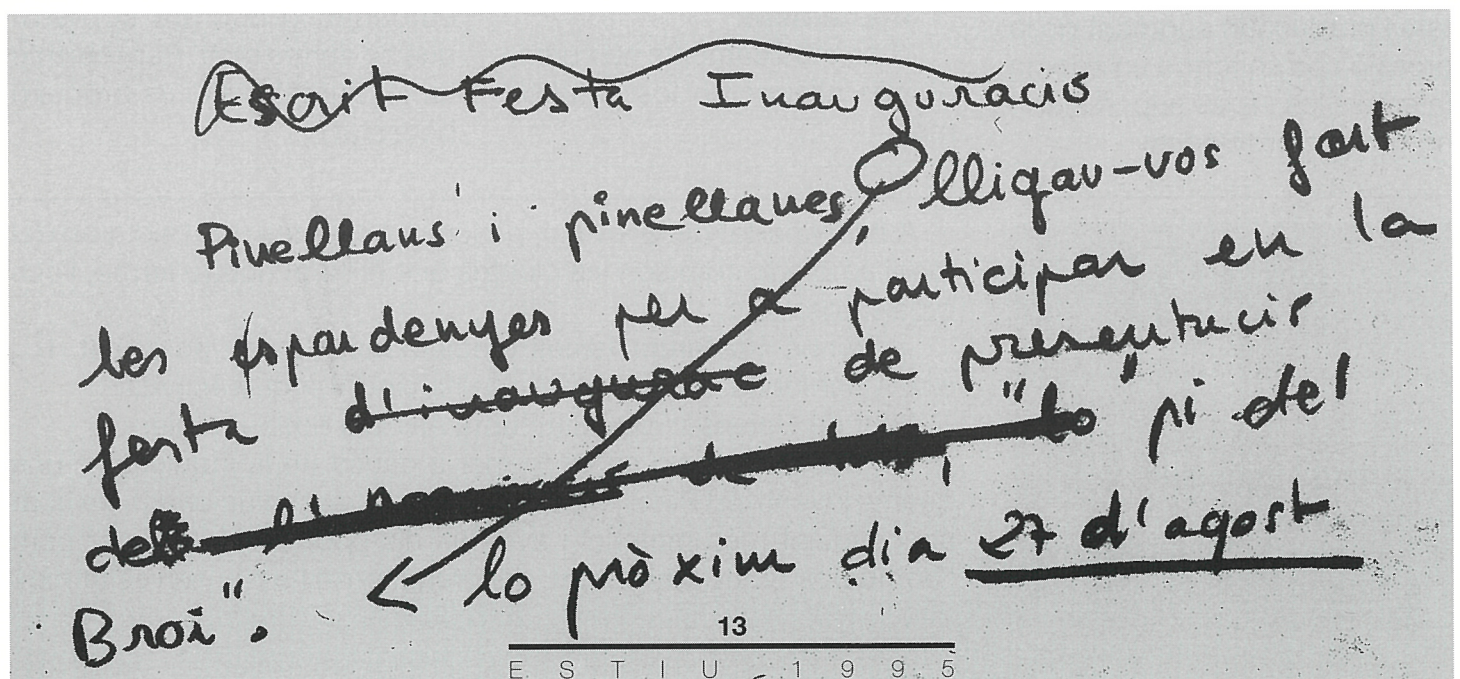 Escrit Festa Inauguració
Pinellans i pinellanes, lligau-vos fort
les espardenyes per a participar en la
festa d'inaugurac de presentació
de "lo pi del
Broi". lo pròxim dia 27 d'agost
13
ESTIU 1995